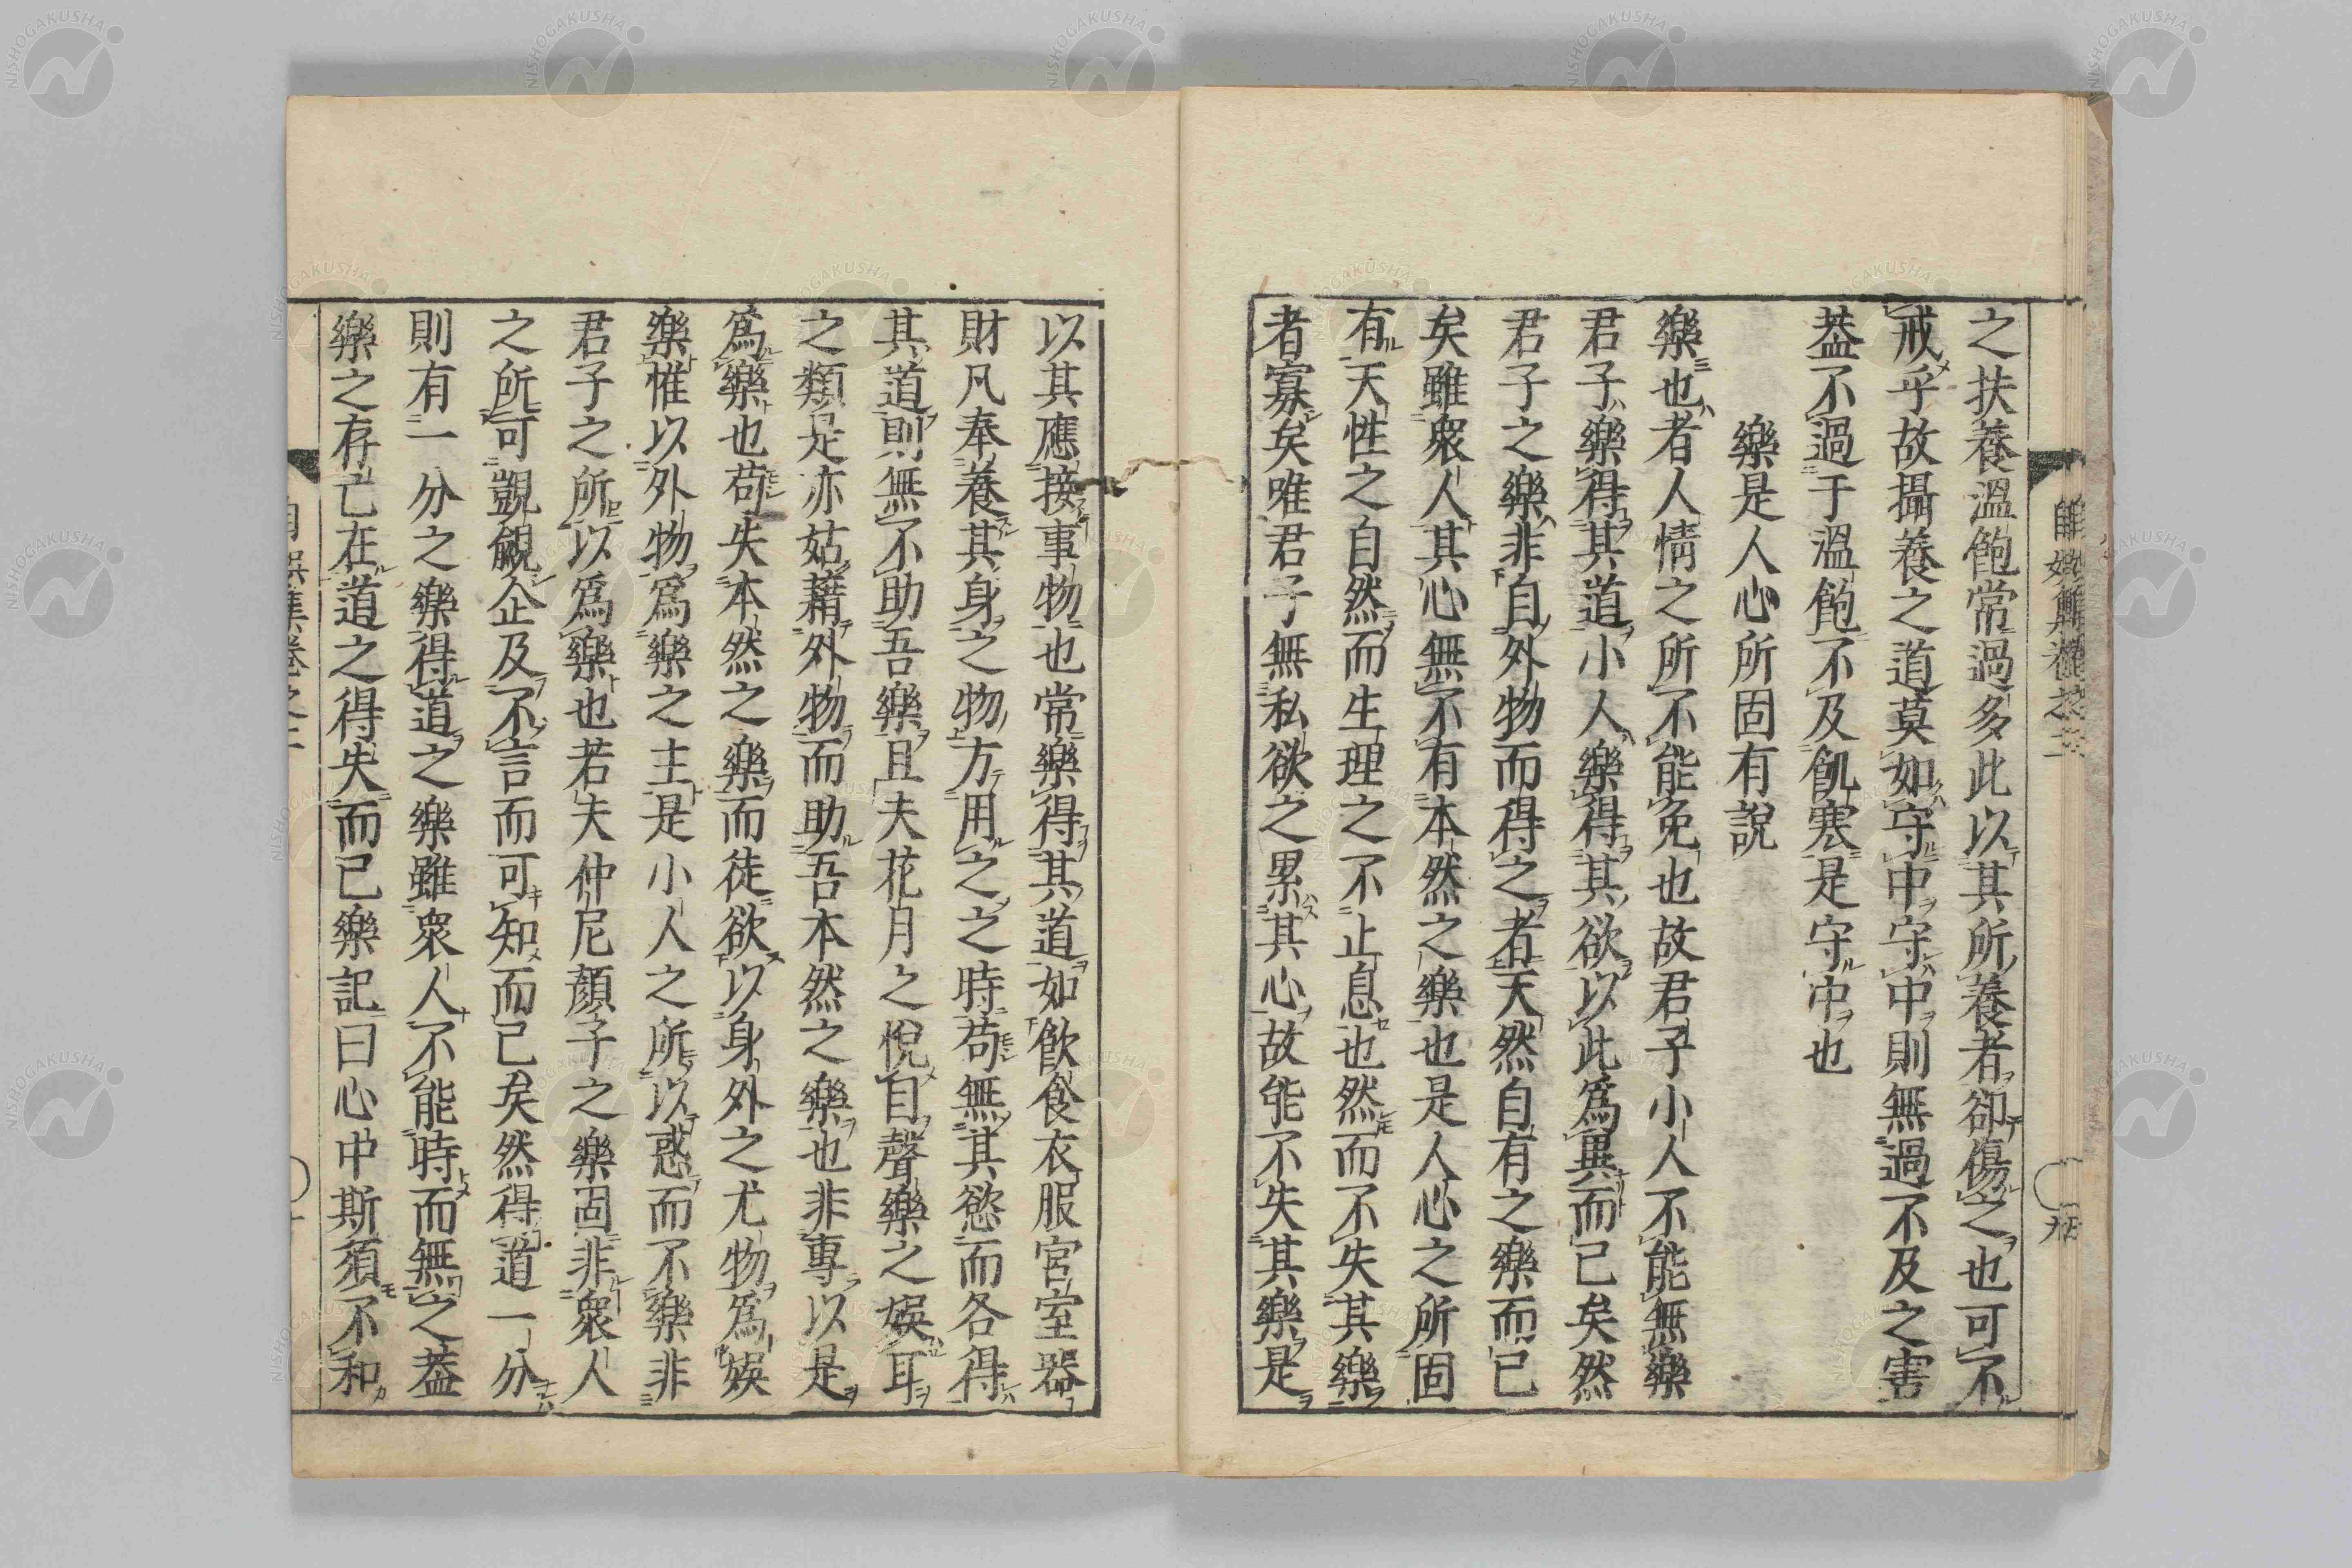 之扶養溫飽常過多此以其所養者卻傷之也可不
戒乎故攝養之道莫如守中守中則無過不及之害
葢不過于溫飽不及飢寒是守中也
樂是人心所固有說
樂也者人情之所不能免也故君子小人不能無樂
君子樂得其道小人樂得其欲以此爲異而已矣然
君子之樂非自外物而得之者天然自有之樂而已
矣雖衆人其心無不有本然之樂也是人心之所固
有天性之自然而生理之不止息也然而不失其樂
者寡矣唯君子無私欲之累其心故能不失其樂是
以其應接事物也常樂得其道如飲食衣服宮室器
財凡奉養其身之物方用之之時苟無其慾而各得
其道則無不助吾樂且夫花月之悅目聲樂之娛耳
之類是亦姑藉外物而助吾本然之樂也非專以是
爲樂也苟失本然之樂而徒欲以身外之尤物爲娛
樂惟以外物爲樂之主是小人之所以惑而不樂非
君子之所以爲樂也若夫仲尼顏子之樂固非衆人
之所可覬覦企及不言而可知而已矣然得道一分
則有一分之樂得道之樂雖衆人不能時而無之葢
樂之存亡在道之得失而已樂記曰心中斯須不和
NISHOGAKUSHA